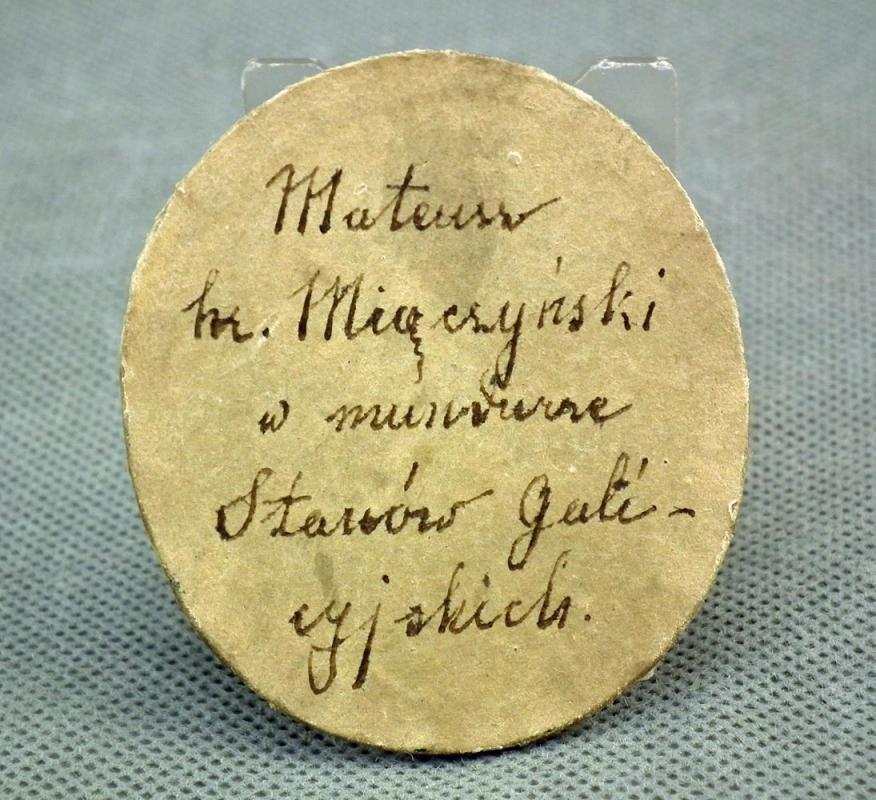 Mateusz
hr. Miączyński
w mundurze
Stanów Gali-
cyjskich.